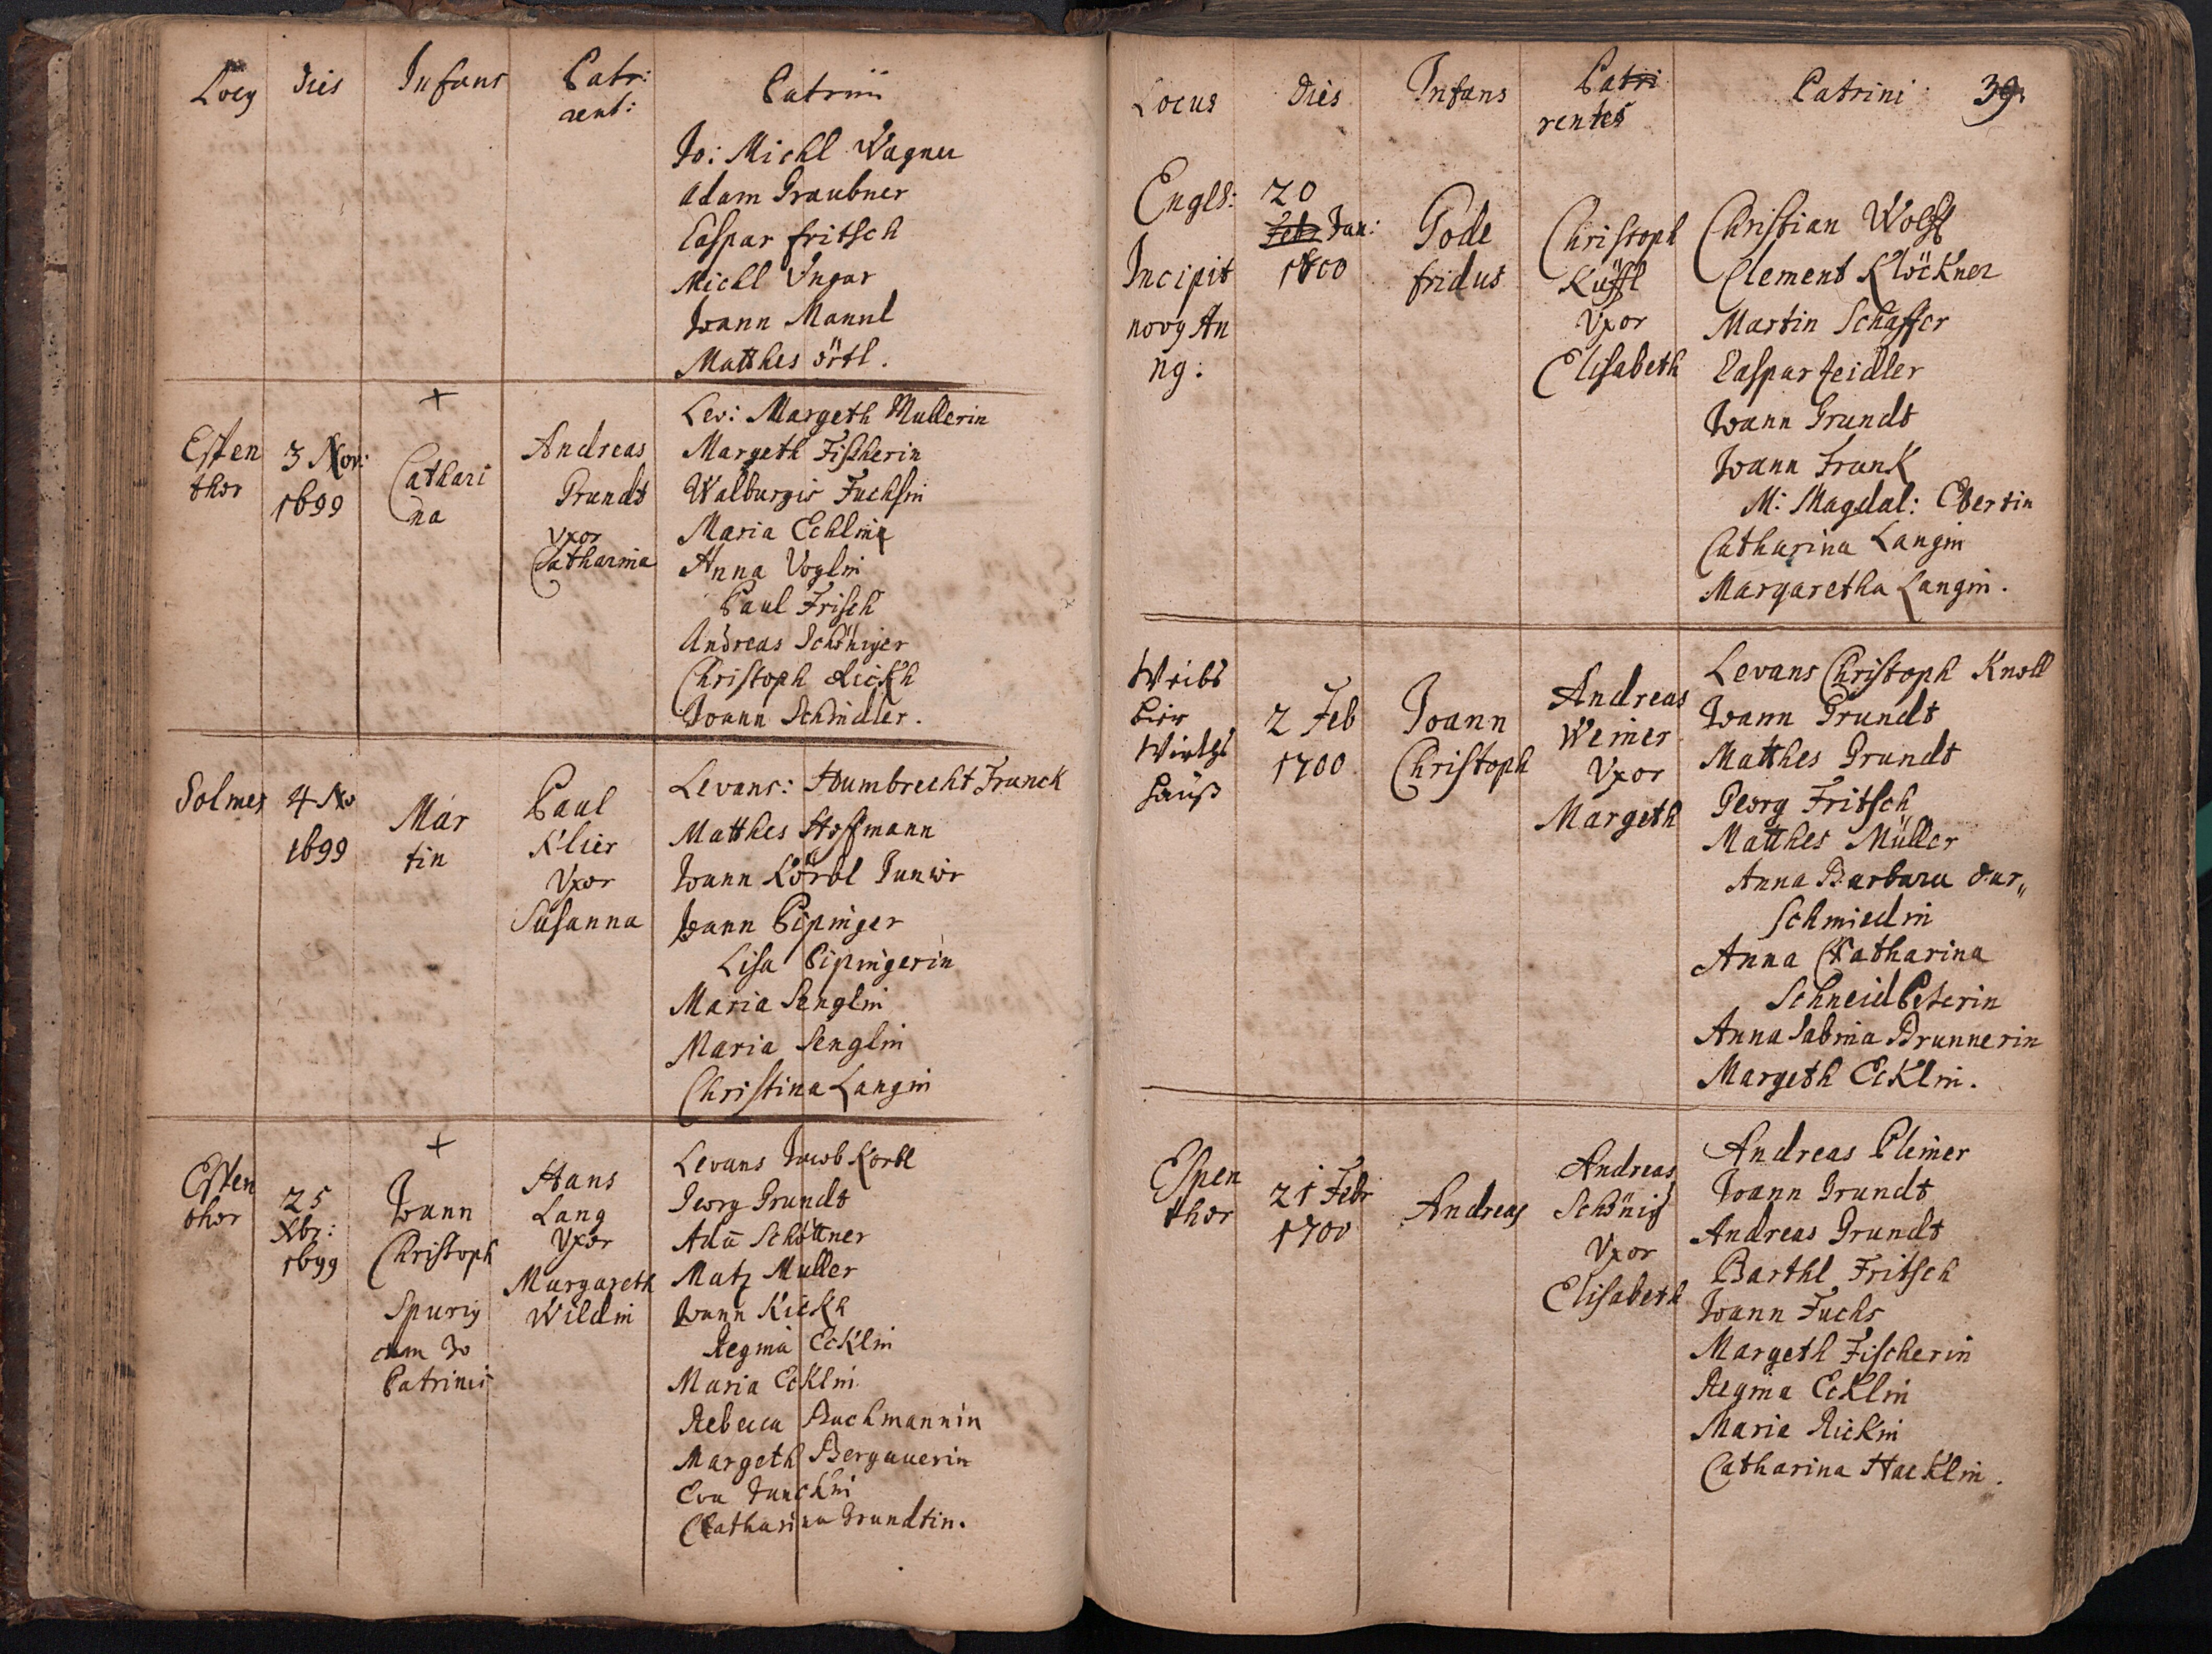 Locy dies Infans Patr: Patrini
rent:
Jo: Michl Wagner
Adam Graubner
Caspar fritsch
Michl Ungar
Joann Mannl
Matthes örtl.
+
Esten
thor
3 Nov:
1699
Cathari
na
Andreas
Grundt
vxor
Catharina
Lev: Margeth Mullerin
Margeth Fischerin
Walburgis Fuchsin
Maria Echlin
Anna Voglin
Paul Frisch
Andreas Schöniger
Christoph Rickh
Joann Schindler.
Solmes
4 No
1699
Mar
tin
Paul
Klier
Vxor
Susanna
Levans: Humbrecht Franck
Matthes Hoffmann
Joann Körbl Junior
Joann Pipinger
Lisa Pipingerin
Maria Senglin
Maria Senglin
Christina Langin
+
Esten
thor
25
Xbr:
1699
Joann
Christoph
Spuriy
cum 10
Patrinis
Hans
Lang
Vxor
Margareth
Wildin
Levans Jacob Korbl
Georg Grundt
Adā Schöttner
Matz Muller
Joann Rickh
Regina Ecklin
Maria Ecklin
Rebecca Bachmannin
Margeth Bergauerin
Eva
Catharina Grundtin.
Locus dies Infans Patri Patrini 39.
rentes
Engls:
Incipit
novy An
ny:
20
Feb: Jan:
1700
Gode
fridus
Christoph
Küffl
Vxor
Elisabeth
Christian Wolff
Clement Klöckner
Martin Schaffer
Caspar feidler
Joann Grundt
Joann Frank
M: Magdal: Ebertin
Catharina Langin
Margaretha Langin.
Weibs
bier
Wirths
hauß
2 Feb
1700
Joann
Christoph
Andreas
Weiner
Vxor
Margeth
Levans Christoph Knoll
Joann Grundt
Matthes Grundt
Georg Fritsch
Matthes Müller
Anna Barbara dur„
Schmiedin
Anna Catharina
Schneid Peterin
Anna Sabina Brunnerin
Margeth Ecklin.
Espen
thor
21 Febr
1700
Andreas
Andreas
Schönig
Vxor
Elisabeth
Andreas Pleiner
Joann Grundt
Andreas Grundt
Barthl Fritsch
Joann Fuchs
Margeth Fischerin
Regina Ecklin
Maria Rickin
Catharina Hacklin.